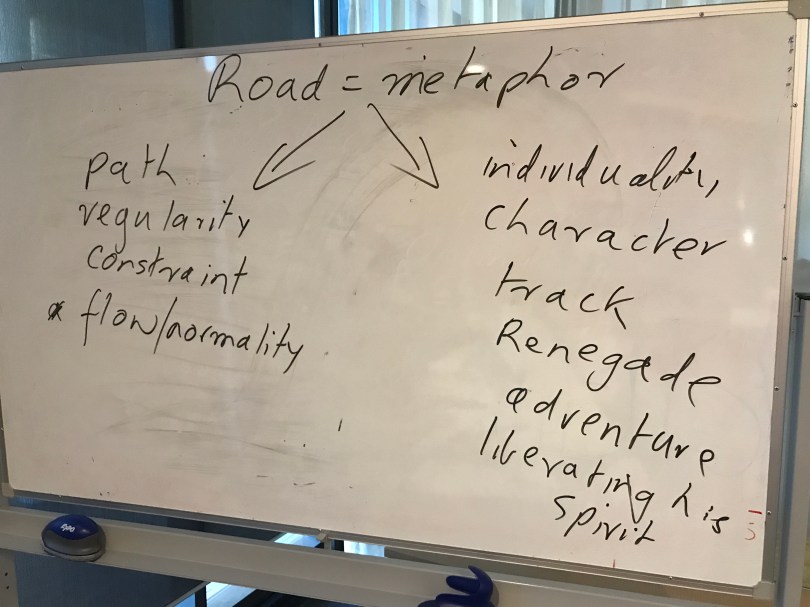 Road = metaphor
path
regularity
constraint
flow/normality
individuality,
character
track
Renegade
adventure
liberating his
spirit
expo